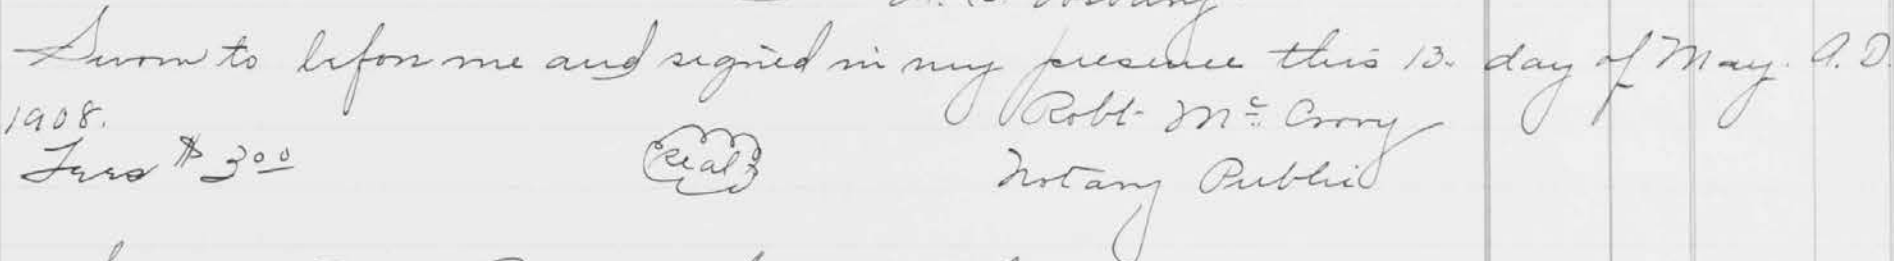 Sworn to before me and signed in my presence this 13. day of May. A.D.
1908.
Robt. Mc Crory
Fees $3.00 (Seal) Notary Public